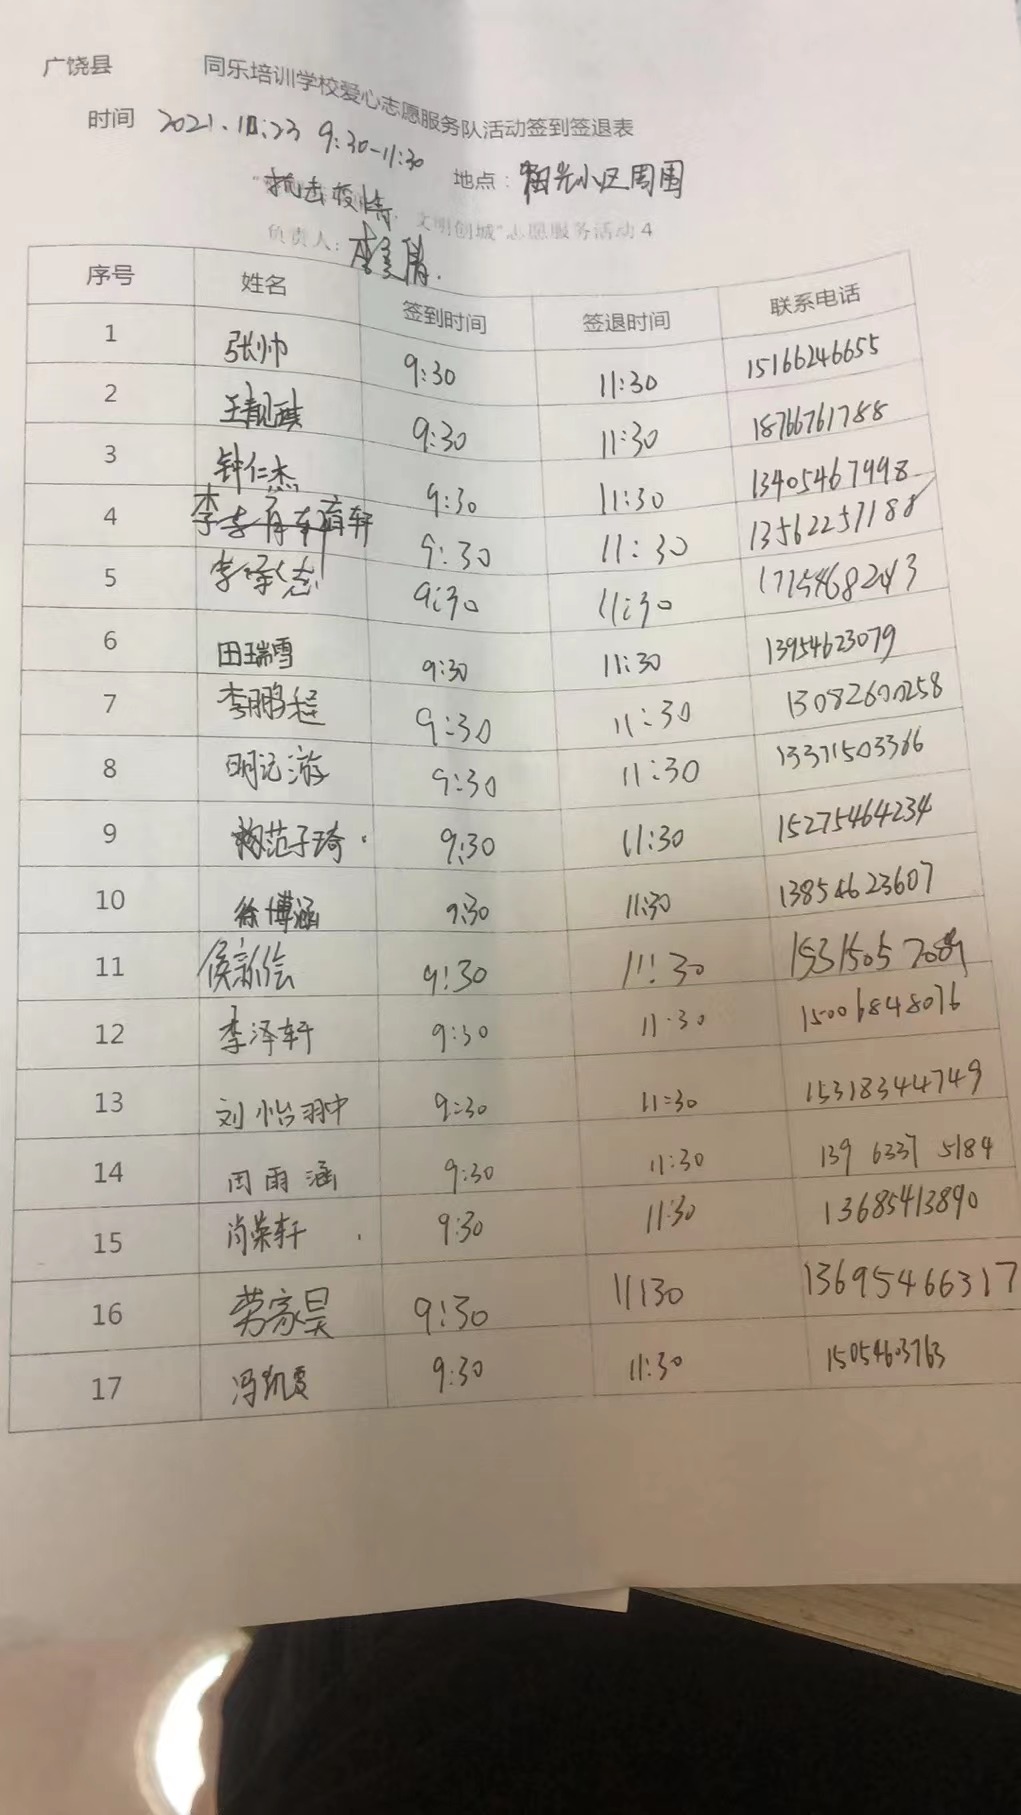 广饶县 同乐培训学校爱心志愿服务队活动签到签退表
时间 2021. 9:30-11:30 地点：阳光小区周围
抗击疫情，文明创城"志愿服务活动4
负责人：
序号 姓名 签到时间 签退时间 联系电话
1 张帅 9:30 11:30 15166246655
2 王靓琪 9:30 11:30 18766761788
3 钟仁杰 9:30 11:30 13405467998
4 李育轩 9:30 11:30 13562257188
5 9:30 11:30
6 田瑞雪 9:30 11:30 13954623079
7 李鹏程 9:30 11:30
8 明沁游 9:30 11:30 13371503366
9 范子琦 9:30 11:30 15275464234
10 徐博涵 9:30 11:30 13854623607
11 侯新绘 9:30 11:30
12 李泽轩 9:30 11:30 15006848076
13 刘怡翀 9:30 11:30 15318344749
14 周雨涵 9:30 11:30 139 6337 5184
15 肖荣轩 9:30 11:30 13685413890
16 劳家昊 9:30 11:30 13695466317
17 冯凯雯 9:30 11:30 15054603763